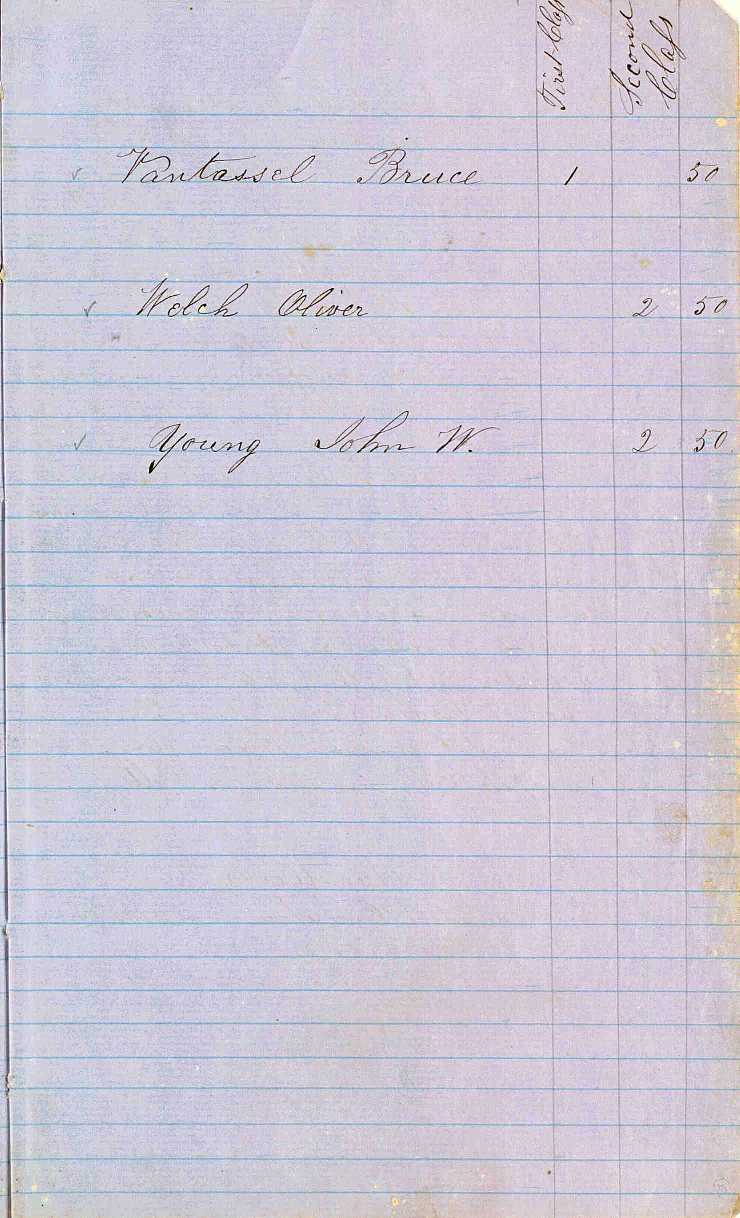 First Class
Second
Class
✓ Vantassel Bruce 1 50
✓ Welch Oliver 2 50
✓ Young John W. 2 50